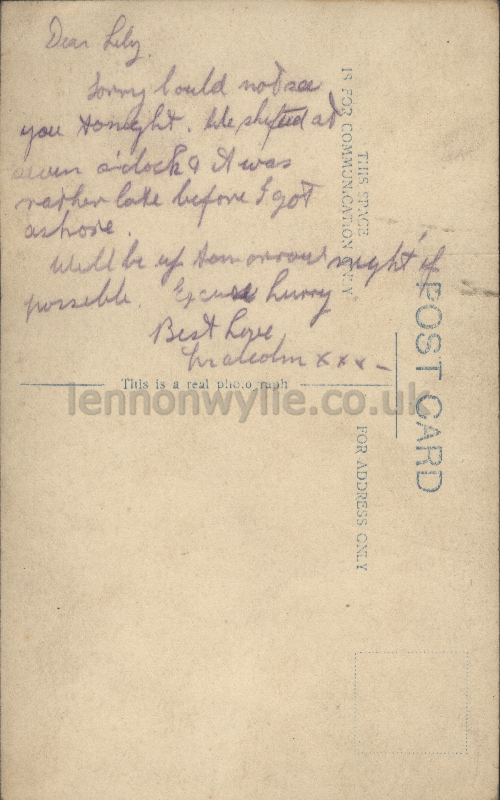 Dear Lily.
Sorry could not see
you tonight. We shifted at
seven o'clock & it was
rather late before I got
ashore.
Will be up tomorrow night if
possible. Excuse hurry
Best Love
Malcolm x x x -
THIS SPACE
IS FOR COMMUNICATION ONLY
This is a real photograph
POST CARD
FOR ADDRESS ONLY
lennonwylie.co.uk